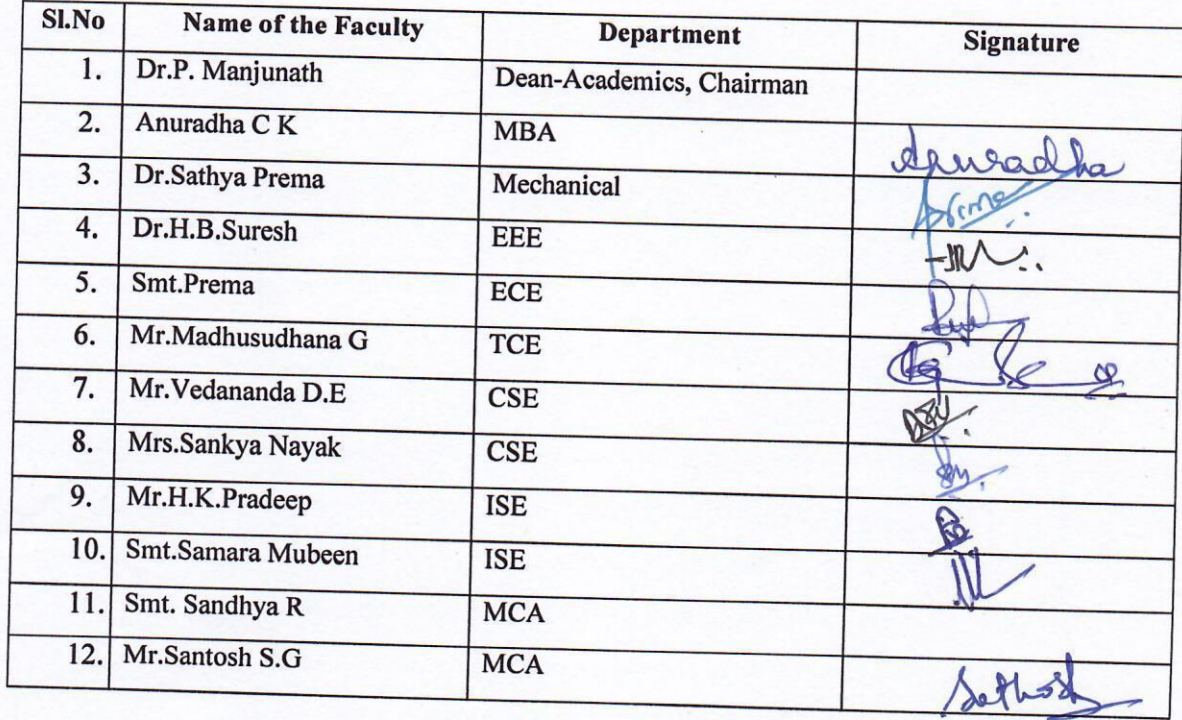 Sl.No Name of the Faculty Department Signature
1. Dr.P. Manjunath Dean-Academics, Chairman
2. Anuradha C K MBA Anuradha
3. Dr.Sathya Prema Mechanical
4. Dr.H.B.Suresh EEE
5. Smt.Prema ECE
6. Mr.Madhusudhana G TCE
7. Mr.Vedananda D.E CSE
8. Mrs.Sankya Nayak CSE
9. Mr.H.K.Pradeep ISE
10. Smt.Samara Mubeen ISE
11. Smt. Sandhya R MCA
12. Mr.Santosh S.G MCA